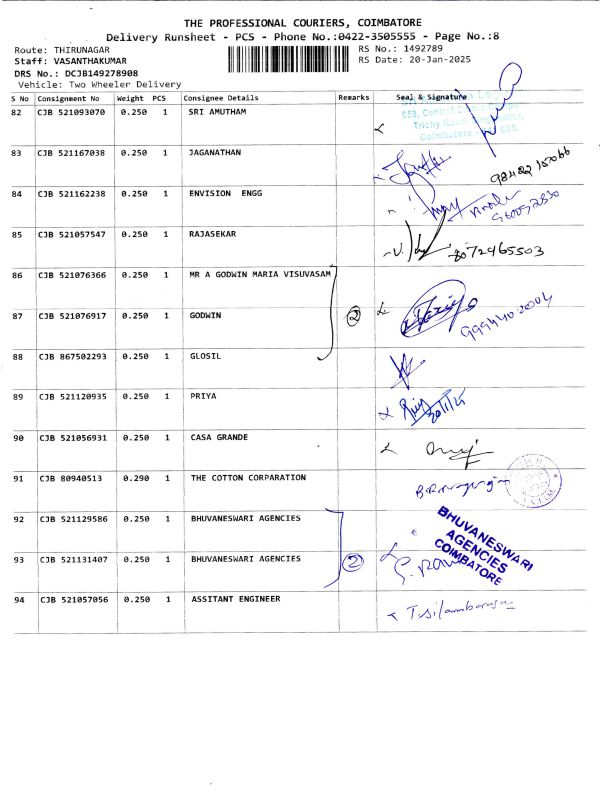 THE PROFESSIONAL COURIERS, COIMBATORE
Delivery Runsheet - PCS - Phone No.:0422-3505555 - Page No.:8
Route: THIRUNAGAR RS No.: 1492789
Staff: VASANTHAKUMAR RS Date: 20-Jan-2025
DRS No.: DCJB149278908
Vehicle: Two Wheeler Delivery
S No Consignment No Weight PCS Consignee Details Remarks Seal & Signature
82 CJB 521093070 0.250 1 SRI AMUTHAM
Trichy Road
Coimbatore
83 CJB 521167038 0.250 1 JAGANATHAN
84 CJB 521162238 0.250 1 ENVISION ENGG
85 CJB 521057547 0.250 1 RAJASEKAR 8072465503
86 CJB 521076366 0.250 1 MR A GODWIN MARIA VISUVASAM
87 CJB 521076917 0.250 1 GODWIN 2
88 CJB 867502293 0.250 1 GLOSIL
89 CJB 521120935 0.250 1 PRIYA Priya 20/1/25
90 CJB 521056931 0.250 1 CASA GRANDE
91 CJB 80940513 0.290 1 THE COTTON CORPARATION
92 CJB 521129586 0.250 1 BHUVANESWARI AGENCIES
93 CJB 521131407 0.250 1 BHUVANESWARI AGENCIES 2
BHUVANESWARI
AGENCIES
COIMBATORE
94 CJB 521057056 0.250 1 ASSITANT ENGINEER T.silambarasan